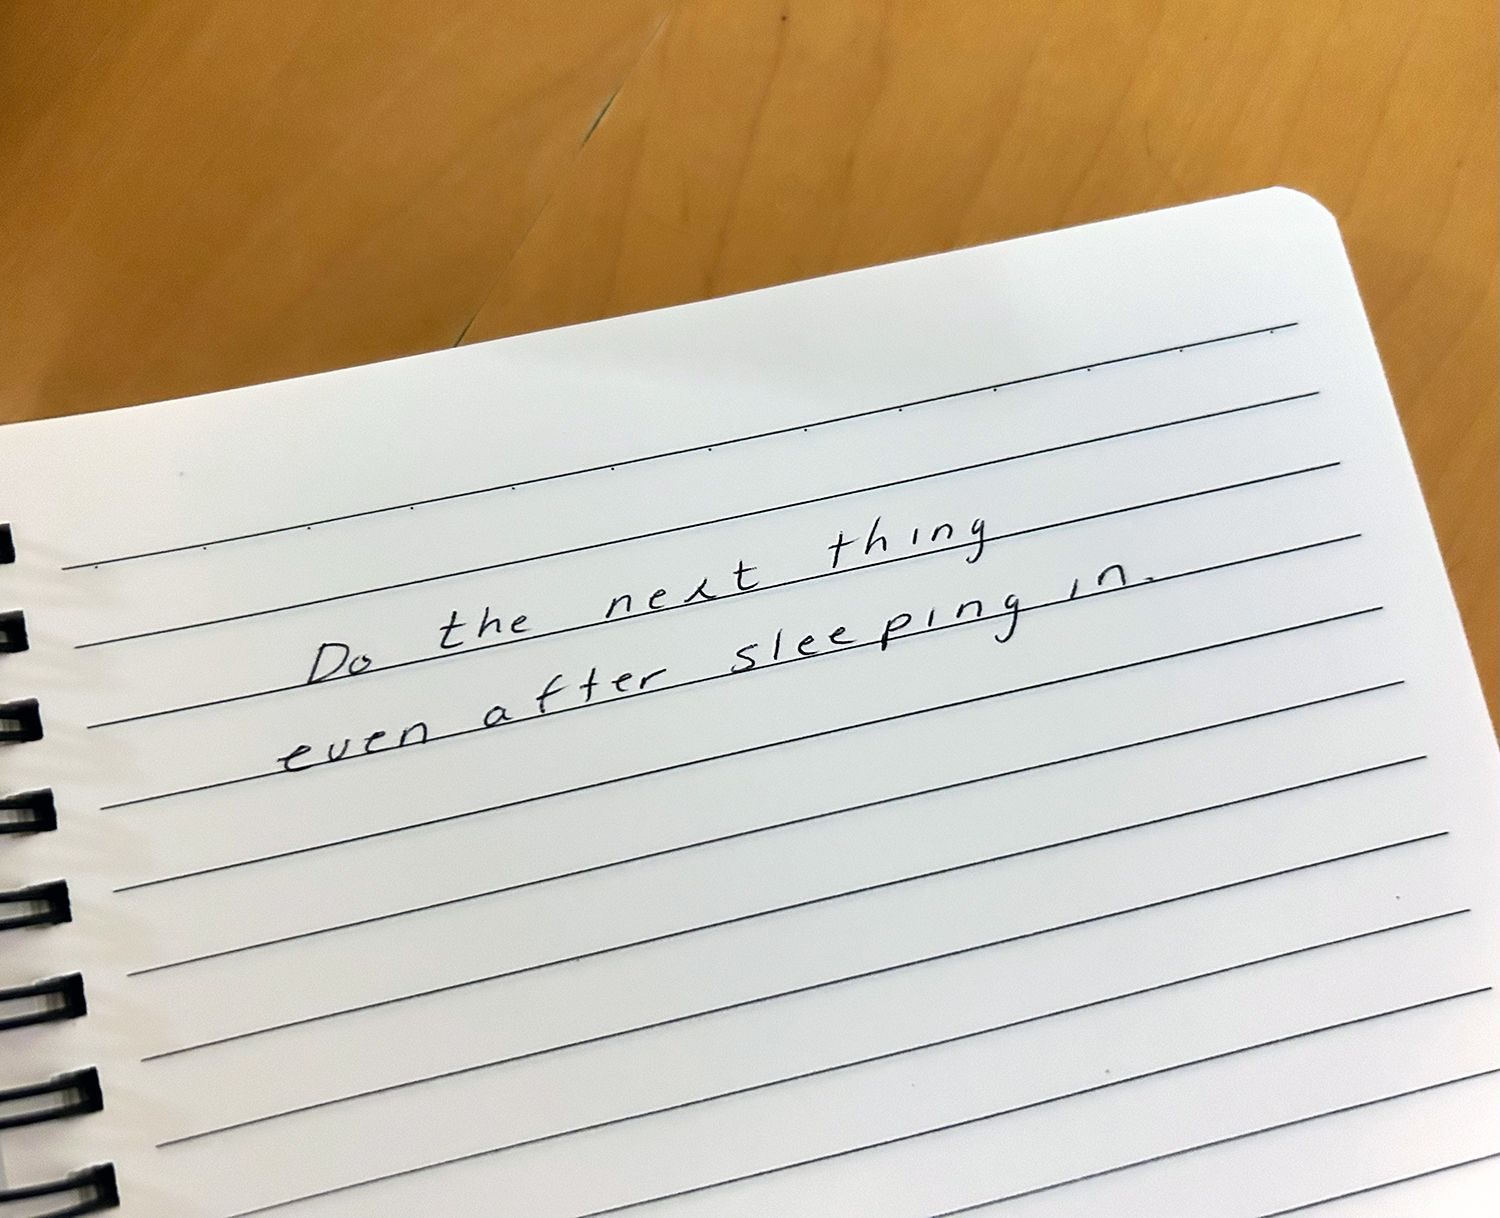 Do the next thing
even after sleeping in.